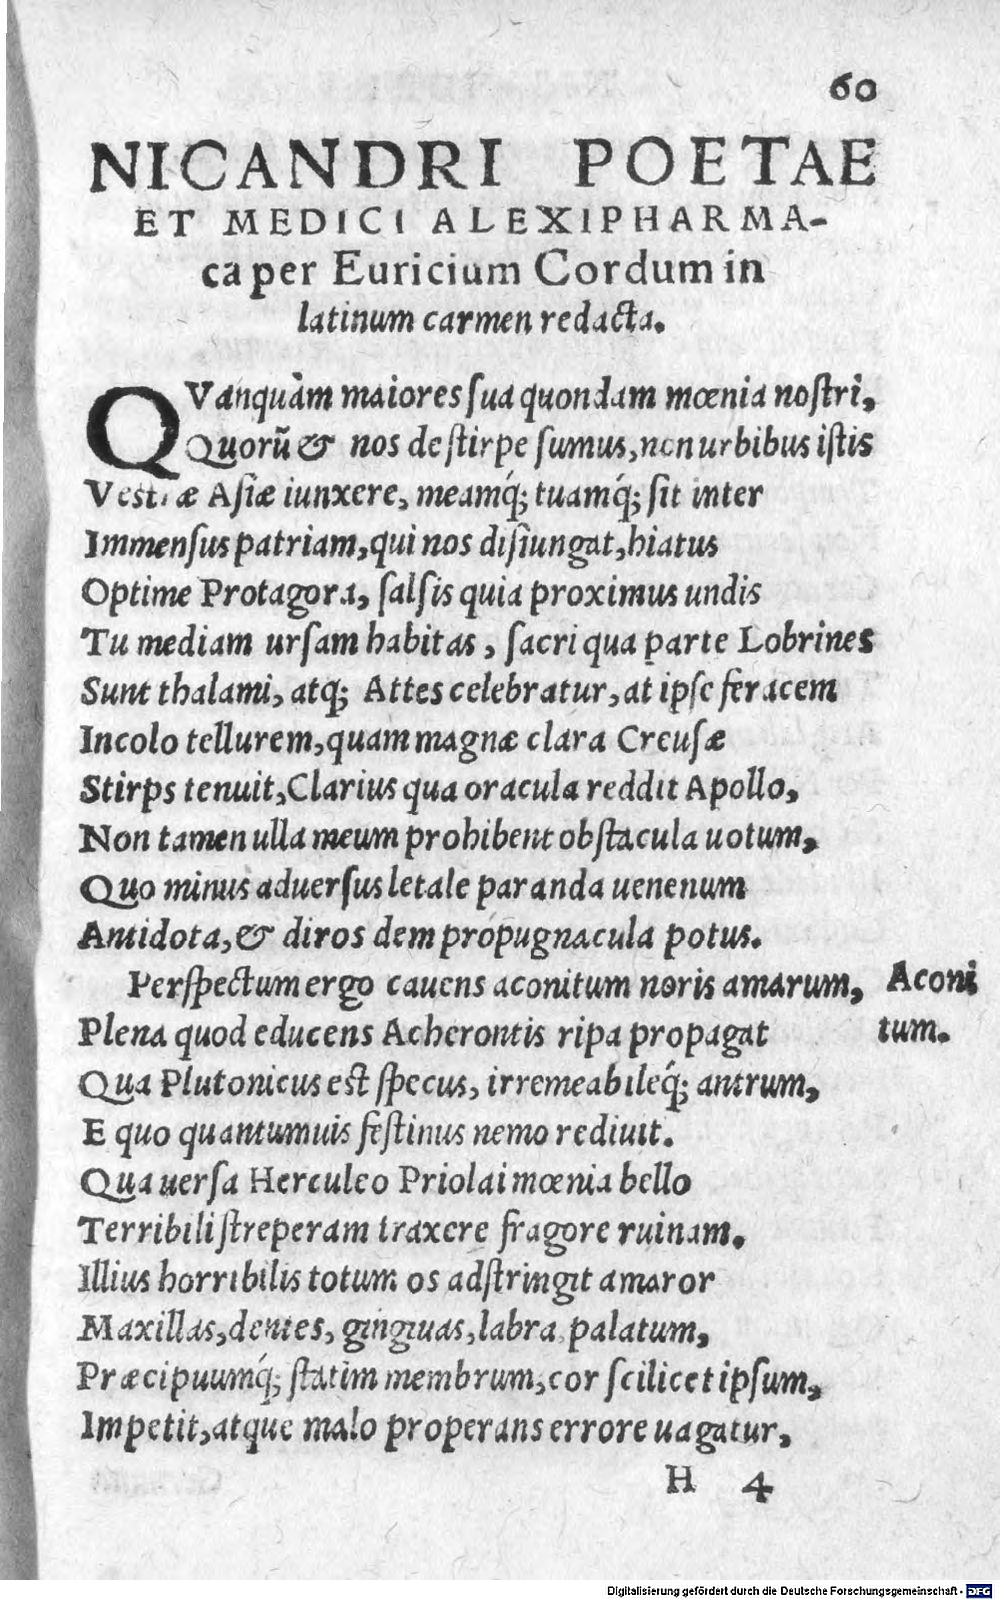 60
NICANDRI POETAE
ET MEDICI ALEXIPHARMA-
ca per Euricium Cordum in
latinum carmen redacta.
QVanquàm maiores sua quondam mœnia nostri,
Quorũ & nos de stirpe sumus, non urbibus istis
Vestræ Asiæ iunxere, meamq́; tuamq́; sit inter
Immensus patriam, qui nos disiungat, hiatus
Optime Protagora, salsis quia proximus undis
Tu mediam ursam habitas, sacri qua parte Lobrines
Sunt thalami, atq; Attes celebratur, at ipse feracem
Incolo tellurem, quam magnæ clara Creusæ
Stirps tenuit, Clarius qua oracula reddit Apollo,
Non tamen ulla meum prohibent obstacula uotum,
Quo minus aduersus letale paranda uenenum
Antidota, & diros dem propugnacula potus.
Perspectum ergo cauens aconitum noris amarum,
Aconi
Plena quod educens Acherontis ripa propagat
tum.
Qua Plutonicus est specus, irremeabileq́; antrum,
E quo quantumuis festinus nemo rediuit.
Qua uersa Herculeo Priolai mœnia bello
Terribili streperam traxere fragore ruinam.
Illius horribilis totum os adstringit amaror
Maxillas, dentes, gingiuas, labra palatum,
Præcipuumq́; statim membrum, cor scilicet ipsum,
Impetit, atque malo properans errore uagatur,
H 4
Digitalisierung gefördert durch die Deutsche Forschungsgemeinschaft - DFG